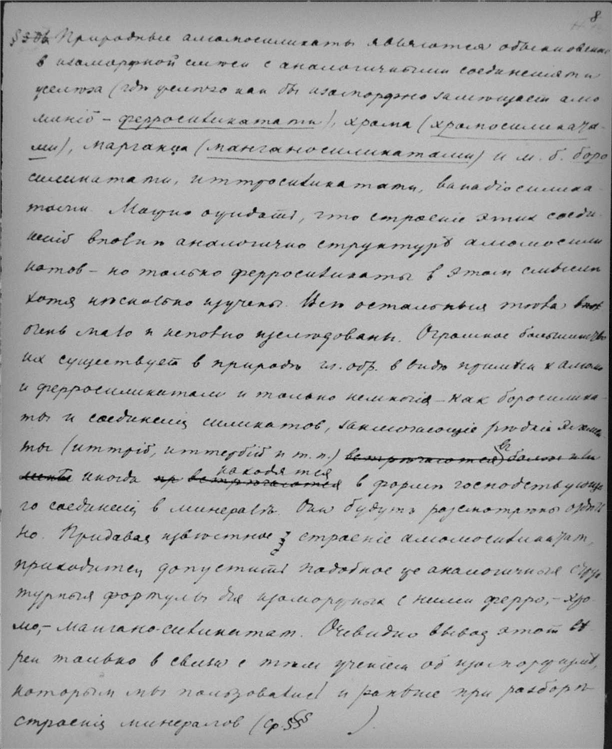 8.
§ Природные алюмосиликаты являются обыкновенно
в изоморфной смѣси с аналогичными соединеніями
желѣза (гдѣ желѣзо как бы изоморфно замѣщает алю
миній – ферросиликатами), хрома (хромосиликата-
ми), марганца (манганосиликатами) и м. б. боро
силикатами, иттросиликатами, ванадіосилика
тами. Можно ожидать, что строеніе этих соеди-
неній вполнѣ аналогично структурѣ алюмосили
катов – но только ферросиликаты в этом смыслѣ
хотя нѣсколько изучены. Всѣ остальныя тѣла
очень мало и неполно изслѣдованы. Огромное большинство
их существует в природѣ гл. обр. в видѣ примѣси к алюмо
и ферросиликатам и только немногія – как боросилика-
ты и соединенія силикатов, заключающіе рѣдкіе элемен
ты (иттрій, иттербій и т. п.) встрѣчаются
иногда встрѣчаются находятся в формѣ господствующа
го соединенія в минералѣ. Они будут разсмотрѣны отдѣль
но. Придавая извѣстное строеніе алюмосиликатам,
приходится допустить подобное же аналогичныя струк
турныя формулы для изоморфных с ними ферро-, хро
мо-, манганосиликатам. Очевидно вывод этот вѣ
рен только в связи с тѣм ученіем об изоморфизмѣ,
которым мы пользовались и раньше при разборѣ
строенія минералов (ср. §§§ ).